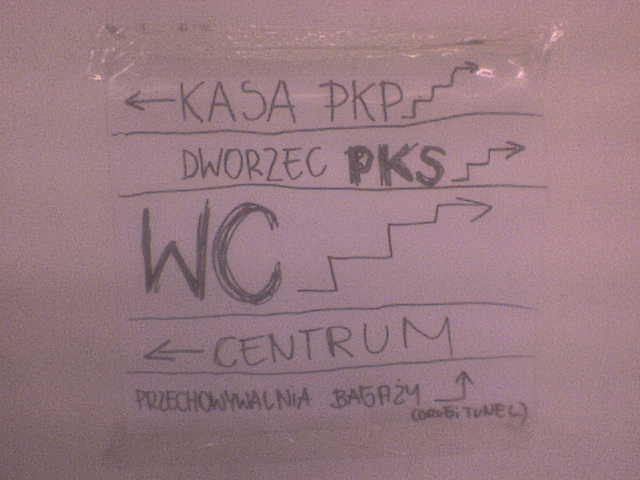 KASA PKP
DWORZEC PKS
WC
CENTRUM
PRZECHOWYWALNIA BAGAŻY
(DRUGI TUNEL)